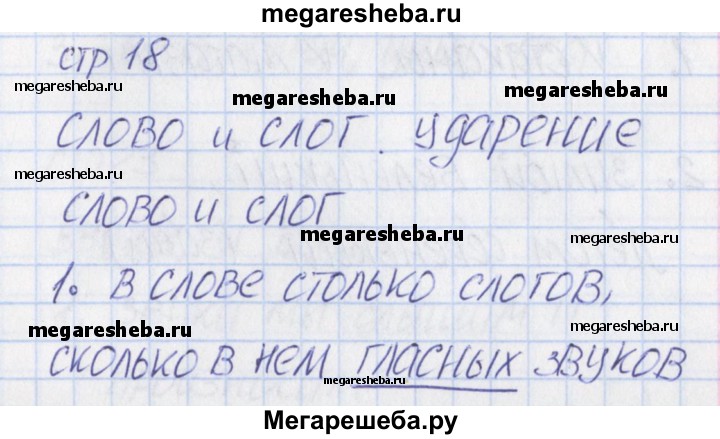 megaresheba.ru
стр 18
megaresheba.ru megaresheba.ru megaresheba.ru
слово и слог. ударение
megaresheba.ru megaresheba.ru
слово и слог
megaresheba.ru megaresheba.ru
1. в слове столько слогов,
megaresheba.ru megaresheba.ru
сколько в нем гласных звуков
megaresheba.ru
Мегарешеба.ру